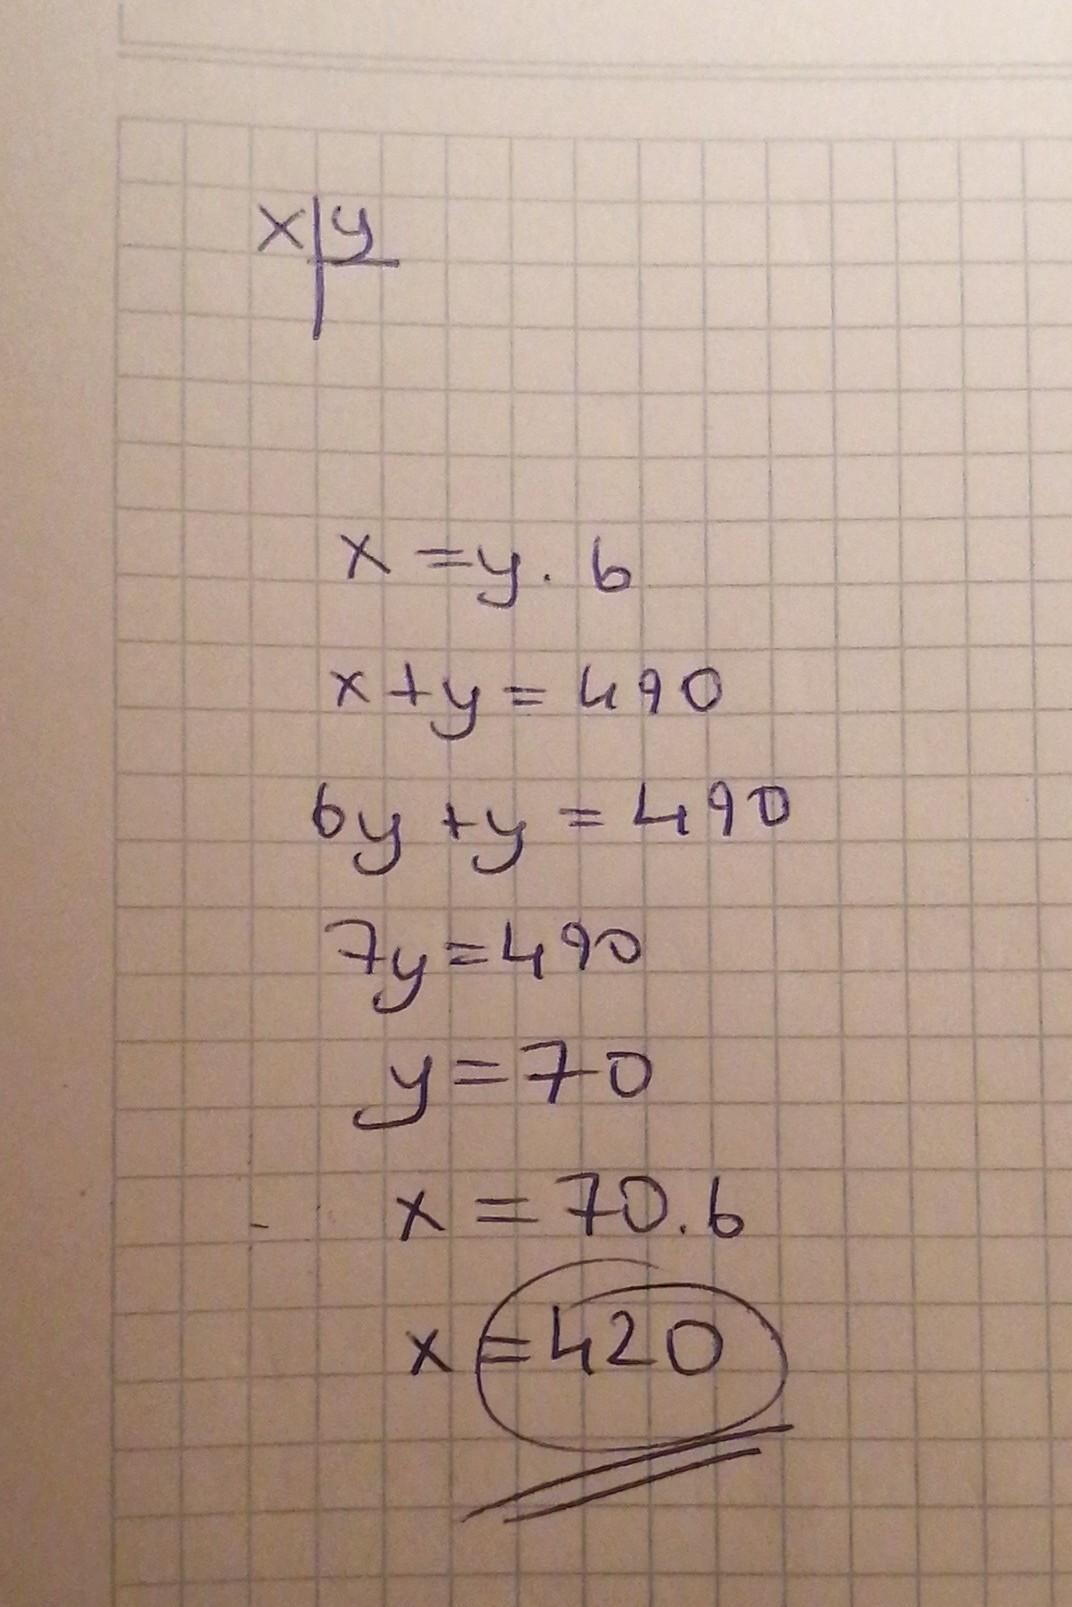 x|y
x = y . 6
x + y = 490
6y + y = 490
7y = 490
y = 70
x = 70 . 6
x = 420